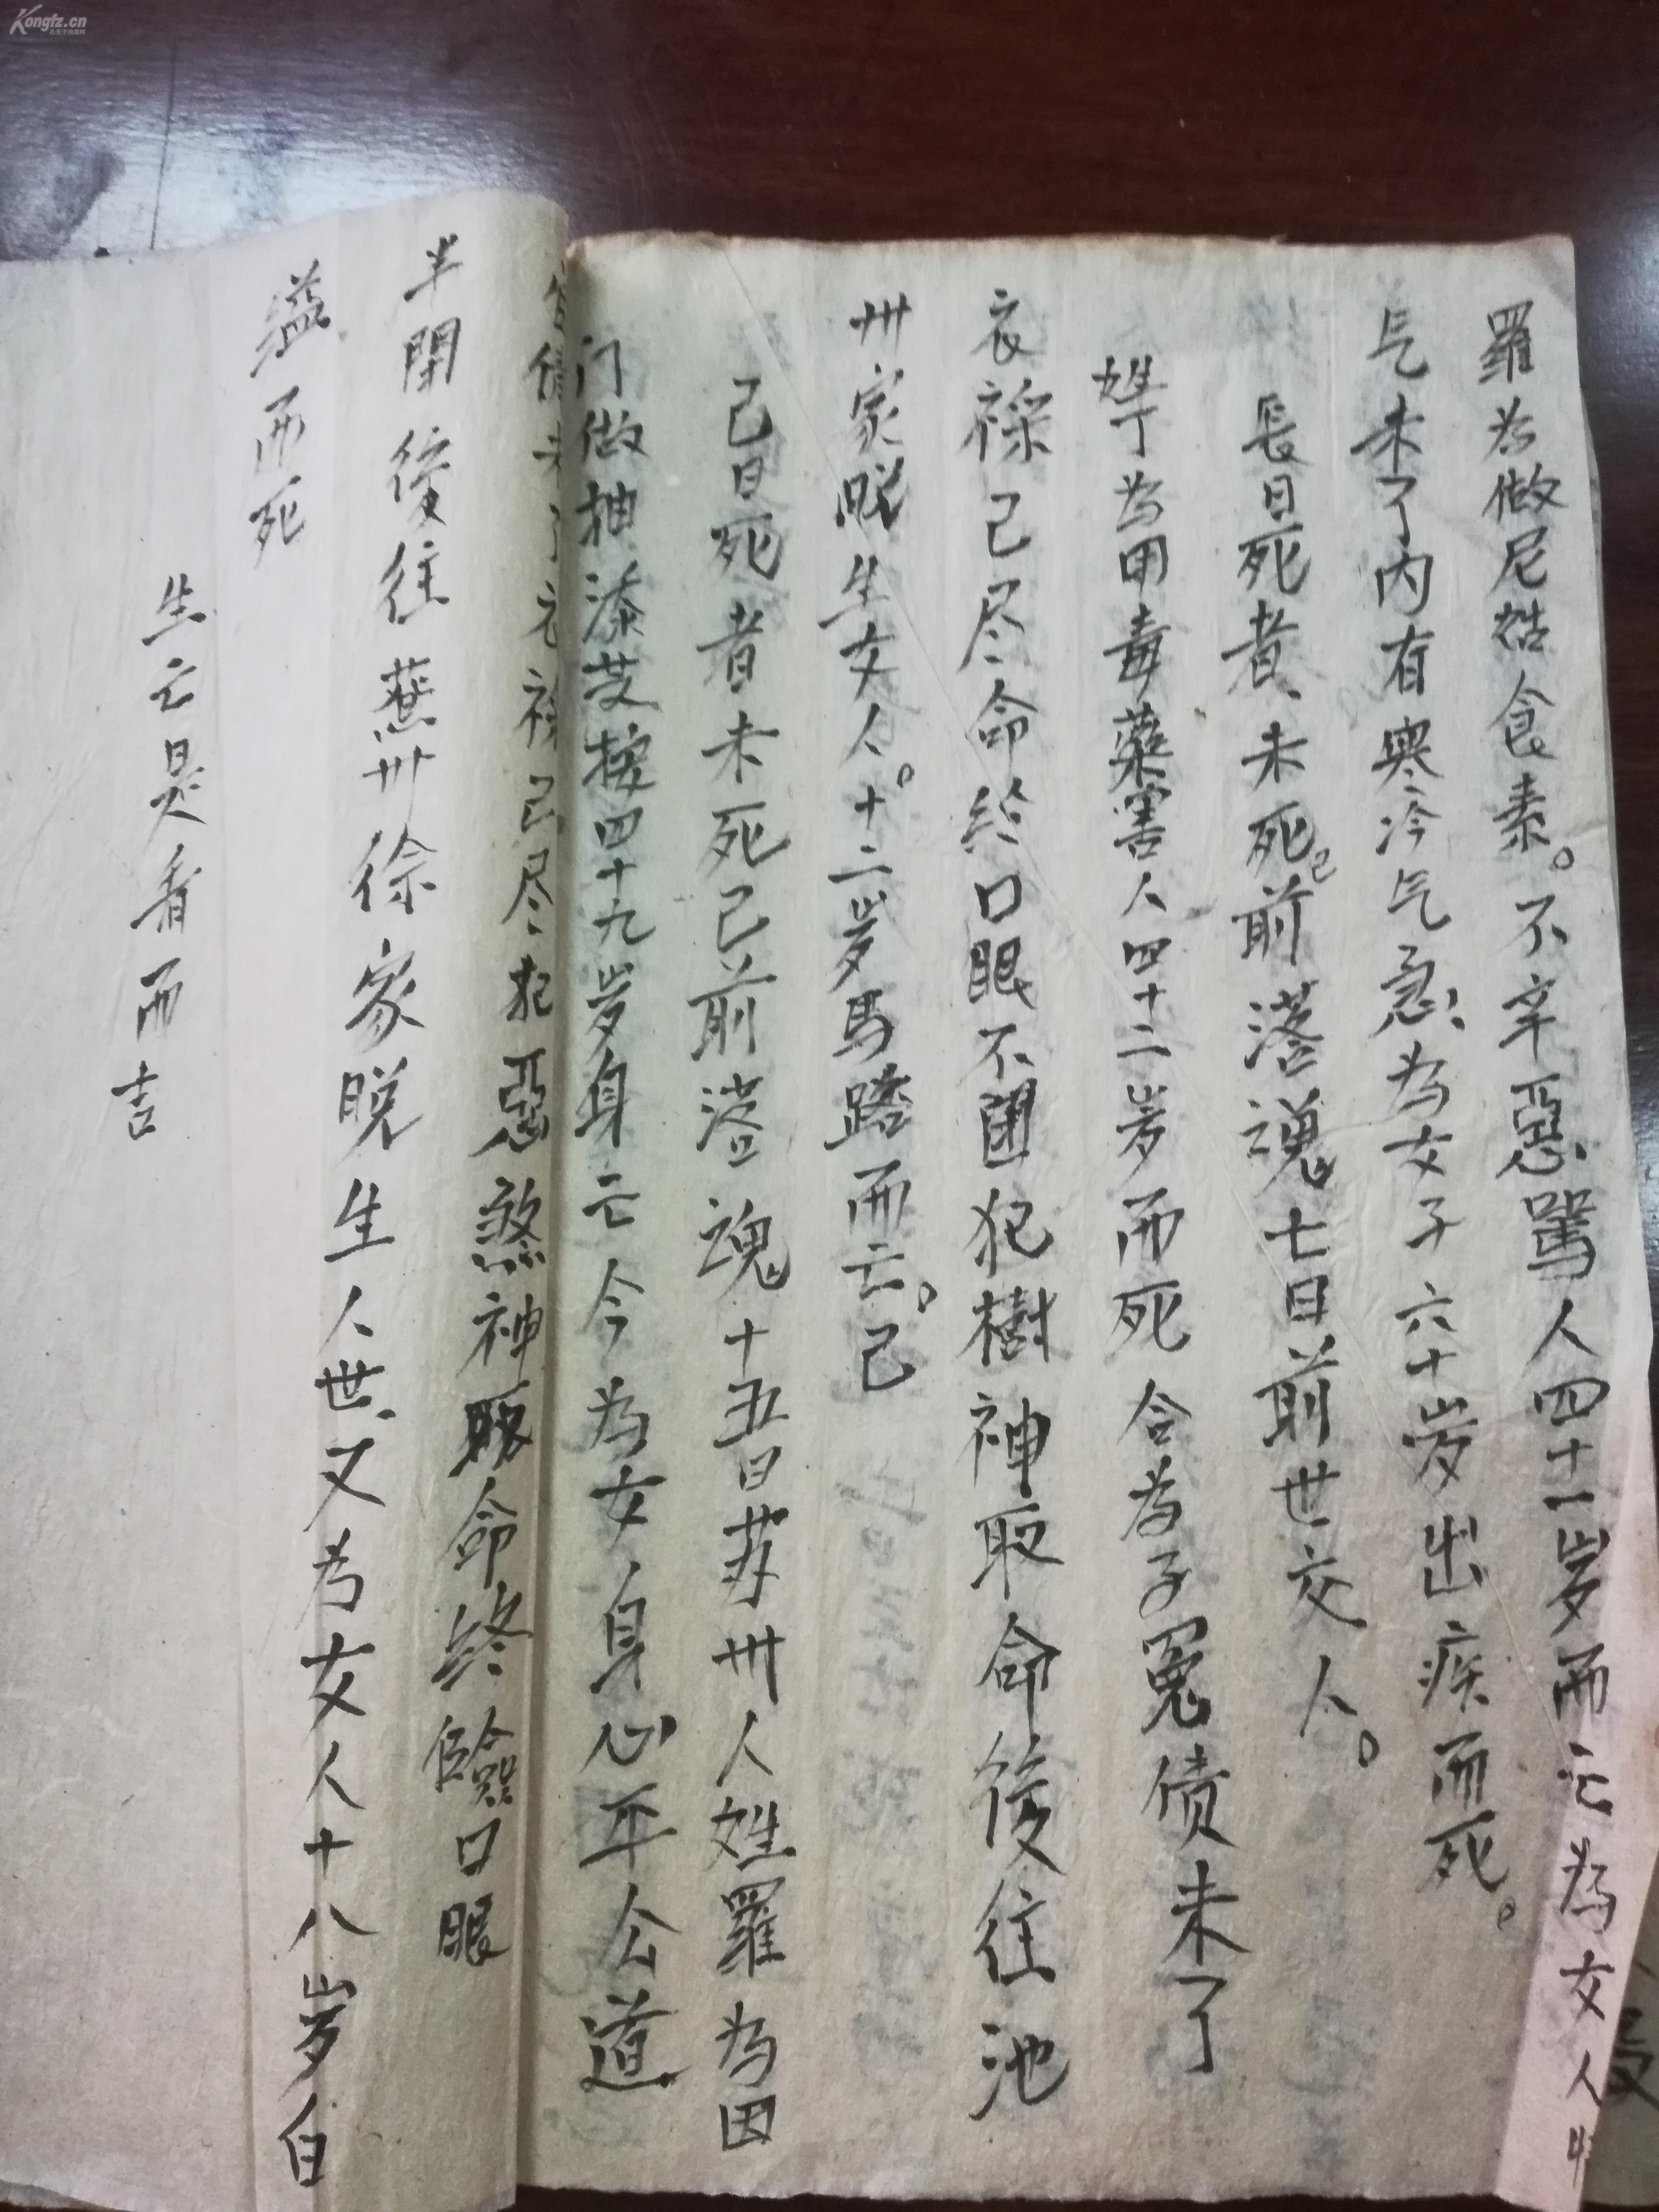 Kongfz.cn
羅为做尼姑食素。不辛惡罵人四十一岁而亡為女人
气未了内有寒冷气急為女子六十岁出疾而死。
辰日死者、未死已前落魂七日前世交人。
姓丁为用毒藥害人四十二岁而死合为子冤债未了
衣禄己尽命終口眼不閉犯樹神取命後往池
卅家脱生女人。十二岁馬踏而亡。己
己日死者未死己前落魂十五日苏卅人姓羅為因
门做抽添芰按四十九岁身亡今為女身心平公道
未了衣禄己尽犯惡煞神取命終臉口眼
半閉後往燕卅徐家晚生人世、又为女人十八岁白
縊而死
生亡是看而吉